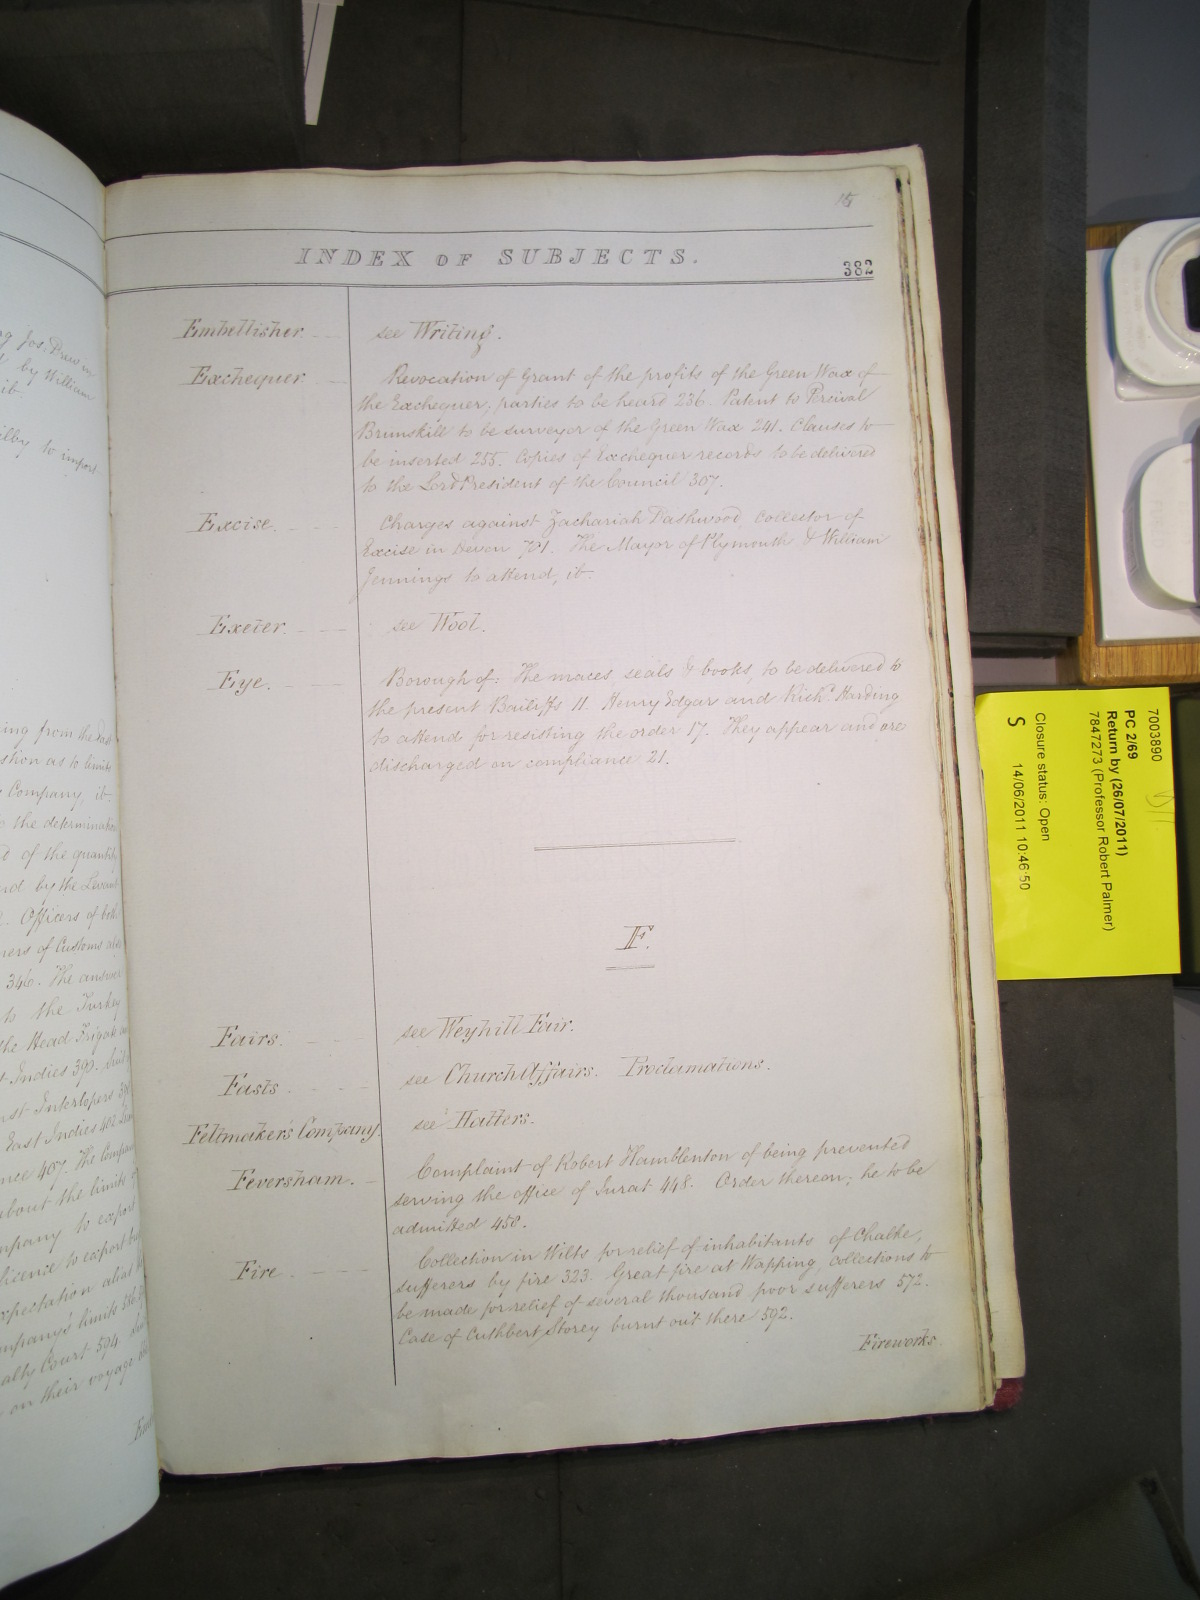 g Jos. Prew in
by William
ib.
ilby to import
ing from the East
stion as to limits
Company, it
the determination
of the quantity
nd by the Levant
Officers of both
ners of Customs also
346. The answer
to the Turkey
the Head Frigate
t Indies 399.
nst Interlopers
East Indies 402
nce 407. The Company
about the limits
mpany to export
licence to export
xpectation
mpany's limits
alty Court 594
on their voyage
15
INDEX OF SUBJECTS.
382
Embellisher. see Writing.
Exchequer. Revocation of Grant of the profits of the Green Wax of
the Exchequer; parties to be heard 236. Patent to Percival
Brunskill to be surveyor of the Green Wax 241. Clauses to
be inserted 255. Copies of Exchequer records to be delivered
to the Lord President of the Council 307.
Excise. Charges against Zachariah Dashwood, Collector of
Excise in Devon 701. The Mayor of Plymouth & William
Jennings to attend, ib.
Exeter. see Wool.
Eye. Borough of: The maces, seals & books, to be delivered to
the present Bailiffs 11. Henry Edgar and Richd. Harding
to attend for resisting the order 17. They appear and are
discharged on compliance 21.
F.
Fairs. see Weyhill Fair.
Fasts see Church Affairs. Proclamations.
Feltmakers' Company. see Hatters.
Feversham. Complaint of Robert Hamblenton of being prevented
serving the office of Jurat 448. Order thereon; he to be
admitted 458.
Fire Collection in Wilts for relief of inhabitants of Chalke,
sufferers by fire 323. Great fire at Wapping, collections to
be made for relief of several thousand poor sufferers 572.
Case of Cuthbert Storey burnt out there 592.
Fireworks.
7003890
PC 2/69
Return by (26/07/2011)
7847273 (Professor Robert Palmer)
Closure status: Open
S 14/06/2011 10:46:50